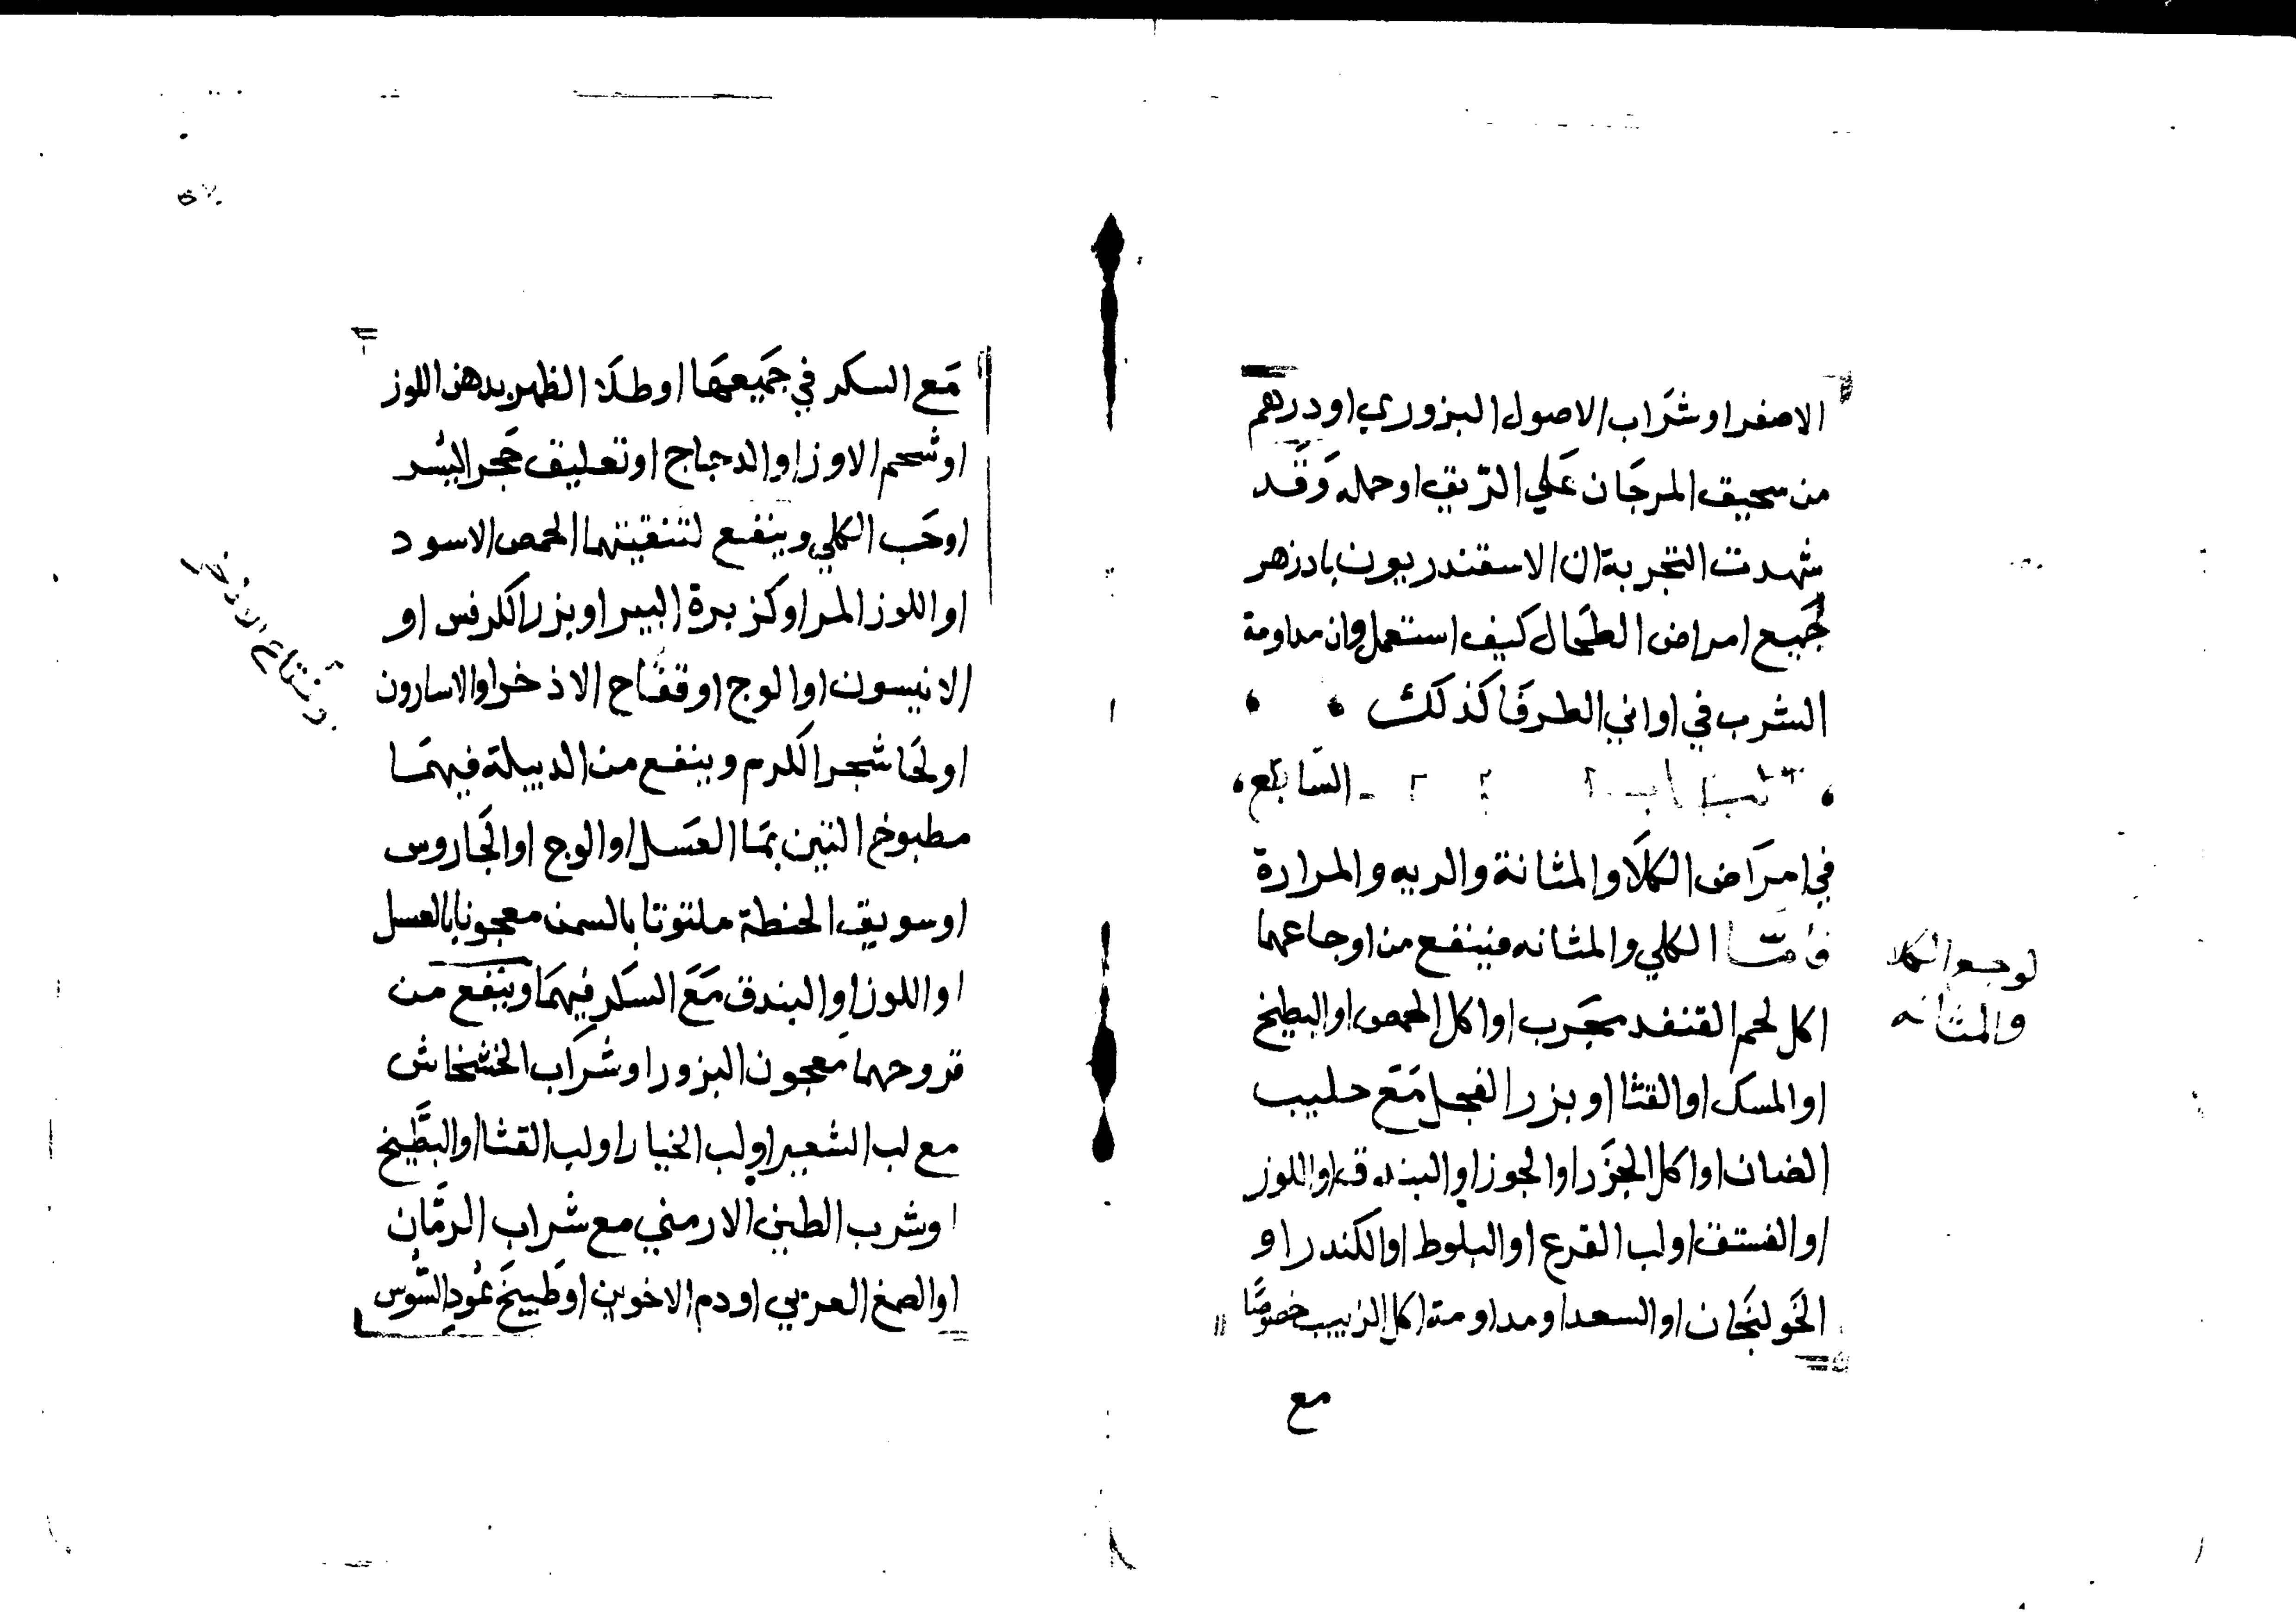 الاصفر او شَراب الاصول البزوري او درهم
من سحيق المرجَان عَلي الرّيق او حمله وَقَد
شهدت التجربة ان الاسقندريون بادزهر
جَميع امراض الطحَال كيف استعمل وان مداومة
الشرب في اواني الطرفَا كذلك
السَّابع
في امرَاض الكلَا والمثانة والريه والمرارة
فأمّا الكلي والمثانه فينفع من اوجاعهما
اكل لحم القنفد مجَرب او اكل الحمص او البطيخ
او المسك او القثا او بزر الفجل مَعَ حليب
الضان او اكل الجزَر او الجوز او البندق او اللوز
او الفستق او لب القرع او البلوط او الكندر او
الخَولنجَان او السعد او مداومة اكل الزبيب خصوصًا
مع
لوجع الكلا
والمثانه
مَع السكر في جَميعهَا او طلَا الظهر بدهن اللوز
او شحم الاوز او الدجاج او تعليق حَجر اليُسر
او حَب الكلي وينفع لتنقيتهما الحمص الاسود
او اللوز المر او كزبرة البير او بزر الكرفس او
الانيسون او الوج او فقاح الاذخر او الاسارون
او لحَا شجر الكرم وينفع من الدبيلة فيهمَا
مطبوخ التين بمَا العَسل او الوج او الجَاروس
او سويق الحنطة ملتوتا بالسمن معجونا بالعسل
او اللوز او البندق مَعَ السكر فيهمَا وينفع من
قروحهما مَعجون البزور او شرَاب الخشخاش
مع لب الشعير او لب الخيار او لب القثا او البطّيخ
او شرب الطين الارمني مع شراب الرمّان
او الصمغ العربي او دم الاخوين او طَبيخَ عُود السّوس